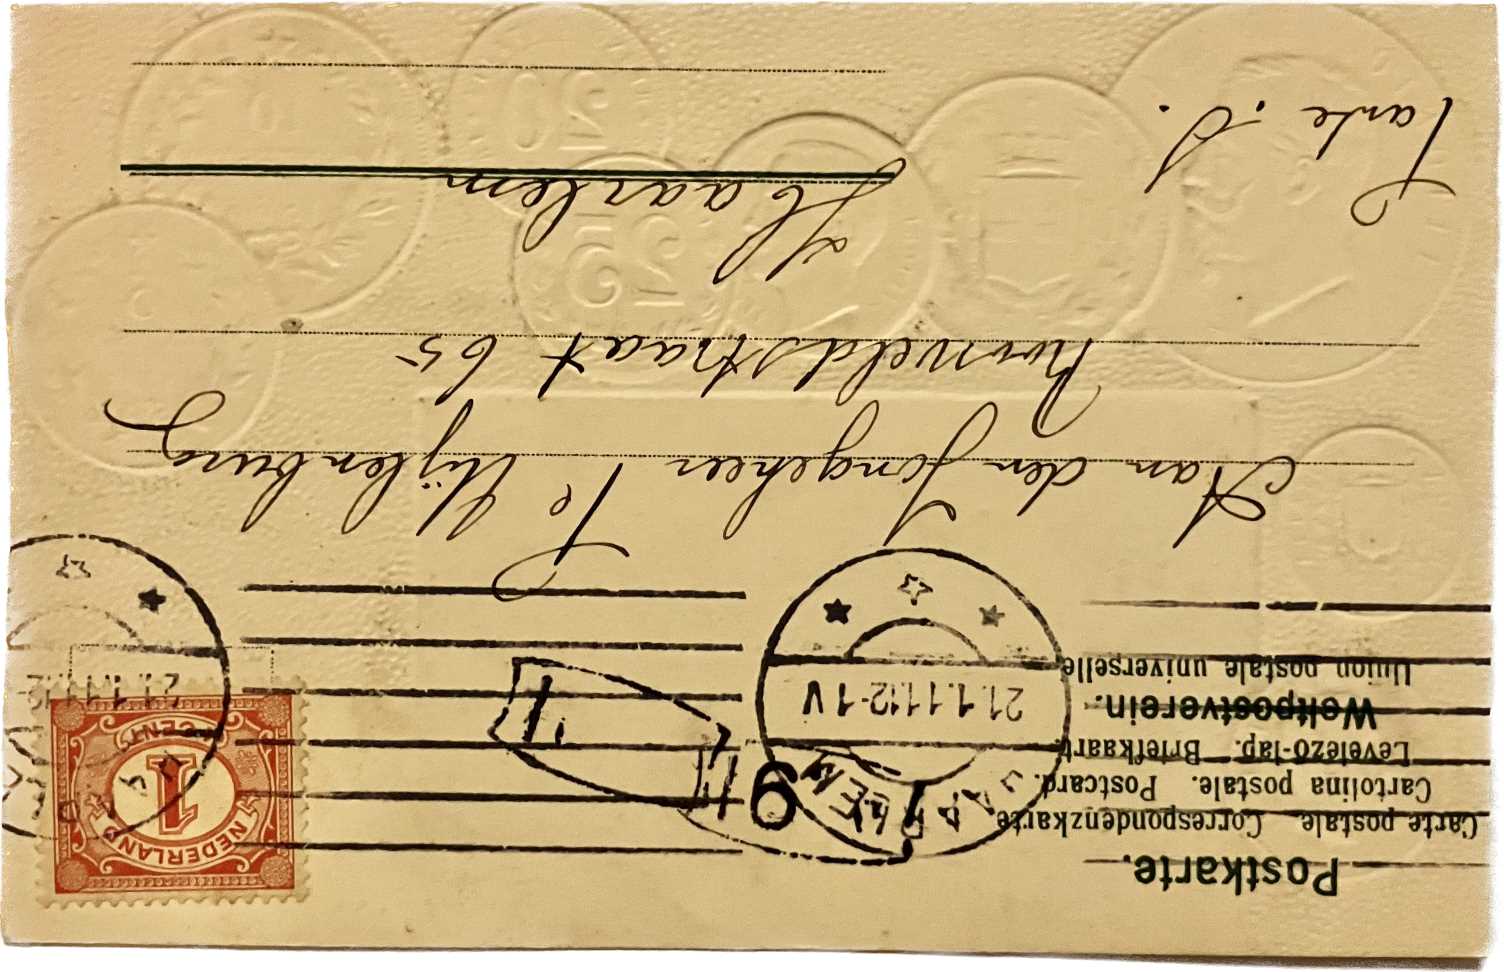 Postkarte.
Carte postale. Correspondenzkarte.
Cartolina postale. Postcard.
Levelező-lap. Briefkaart.
Weltpostverein.
Union postale universelle
HAARLEM
21.1.11.12-1 V
6
21.1.11.12-
NEDERLAND
1
CENT
Aan den Jongeheer P. Uijlenburg
65
Haarlem
Tante S.
25
20